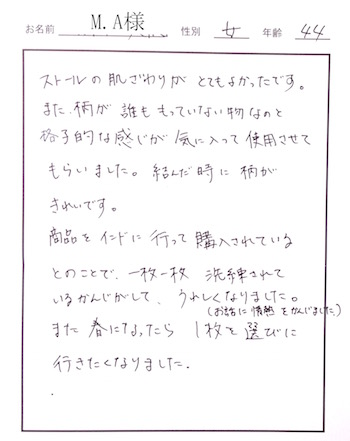 お名前 M.A様 性別 女 年齢 44
ストールの肌ざわりが とてもよかったです。
また、柄が 誰ももっていない物なのと
格子的な感じが 気に入って 使用させて
もらいました。結んだ時に 柄が
きれいです。
商品をインドに行って購入されている
とのことで、一枚一枚 洗練されて
いるかんじがして、うれしくなりました。
(お話に情熱をかんじました)
また 春になったら 1枚を選びに
行きたくなりました.